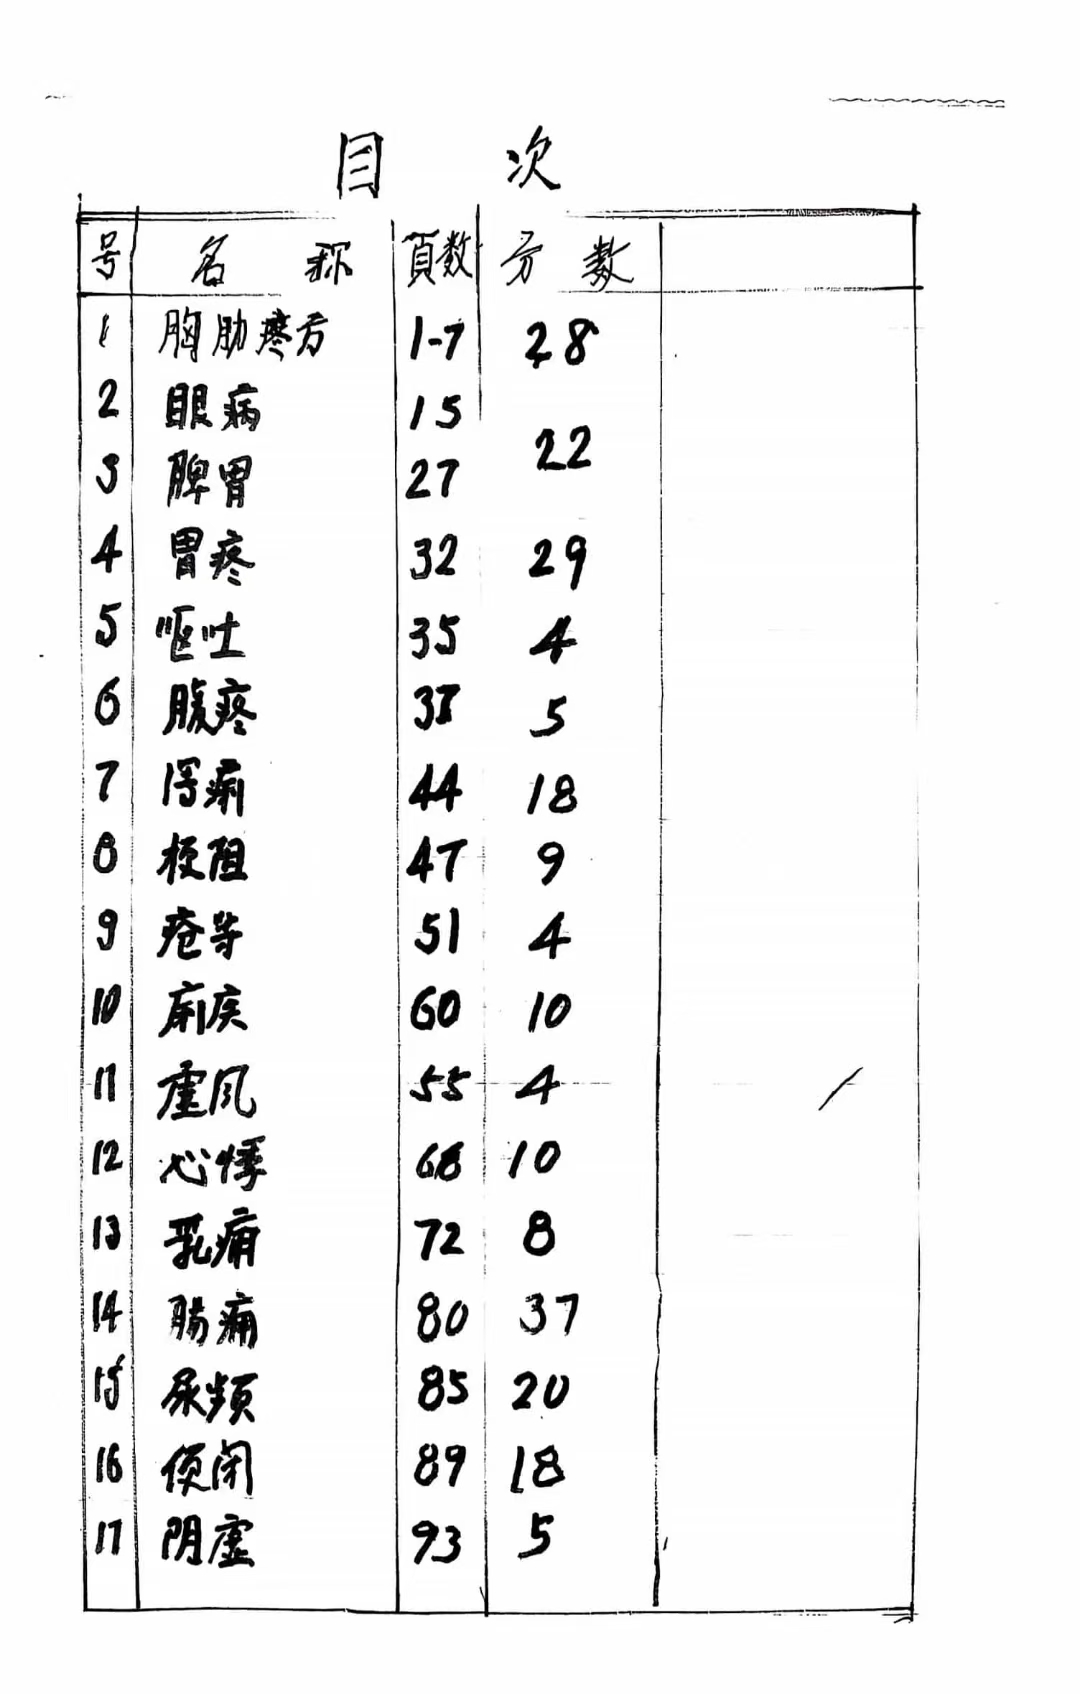 目 次
号 名 称 頁数 分数
1 胸肋疼方 1-7 28
2 眼病 15
22
3 脾胃 27
4 胃疼 32 29
5 呕吐 35 4
6 腹疼 37 5
7 泻痢 44 18
8 梗阻 47 9
9 疮等 51 4
10 痢疾 60 10
11 虚风 55 4
12 心悸 68 10
13 乳痈 72 8
14 肠痈 80 37
15 尿频 85 20
16 闭 89 18
17 阴虚 93 5